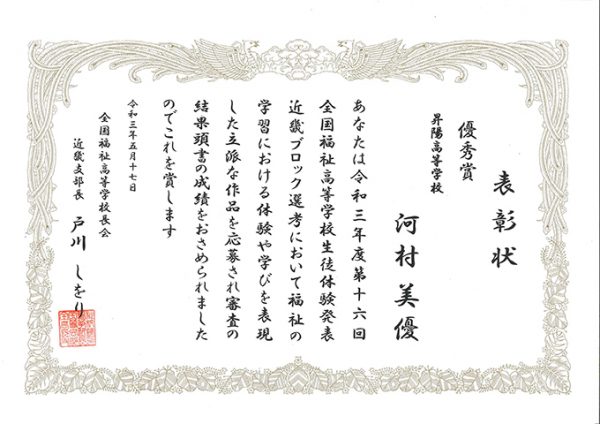 表彰状
優秀賞
昇陽高等学校
河村美優
あなたは令和三年度第十六回
全国福祉高等学校生徒体験発表
近畿ブロック選考において福祉の
学習における体験や学びを表現
した立派な作品を応募され審査の
結果頭書の成績をおさめられました
のでこれを賞します
令和三年五月十七日
全国福祉高等学校長会
近畿支部長 戸川しをり